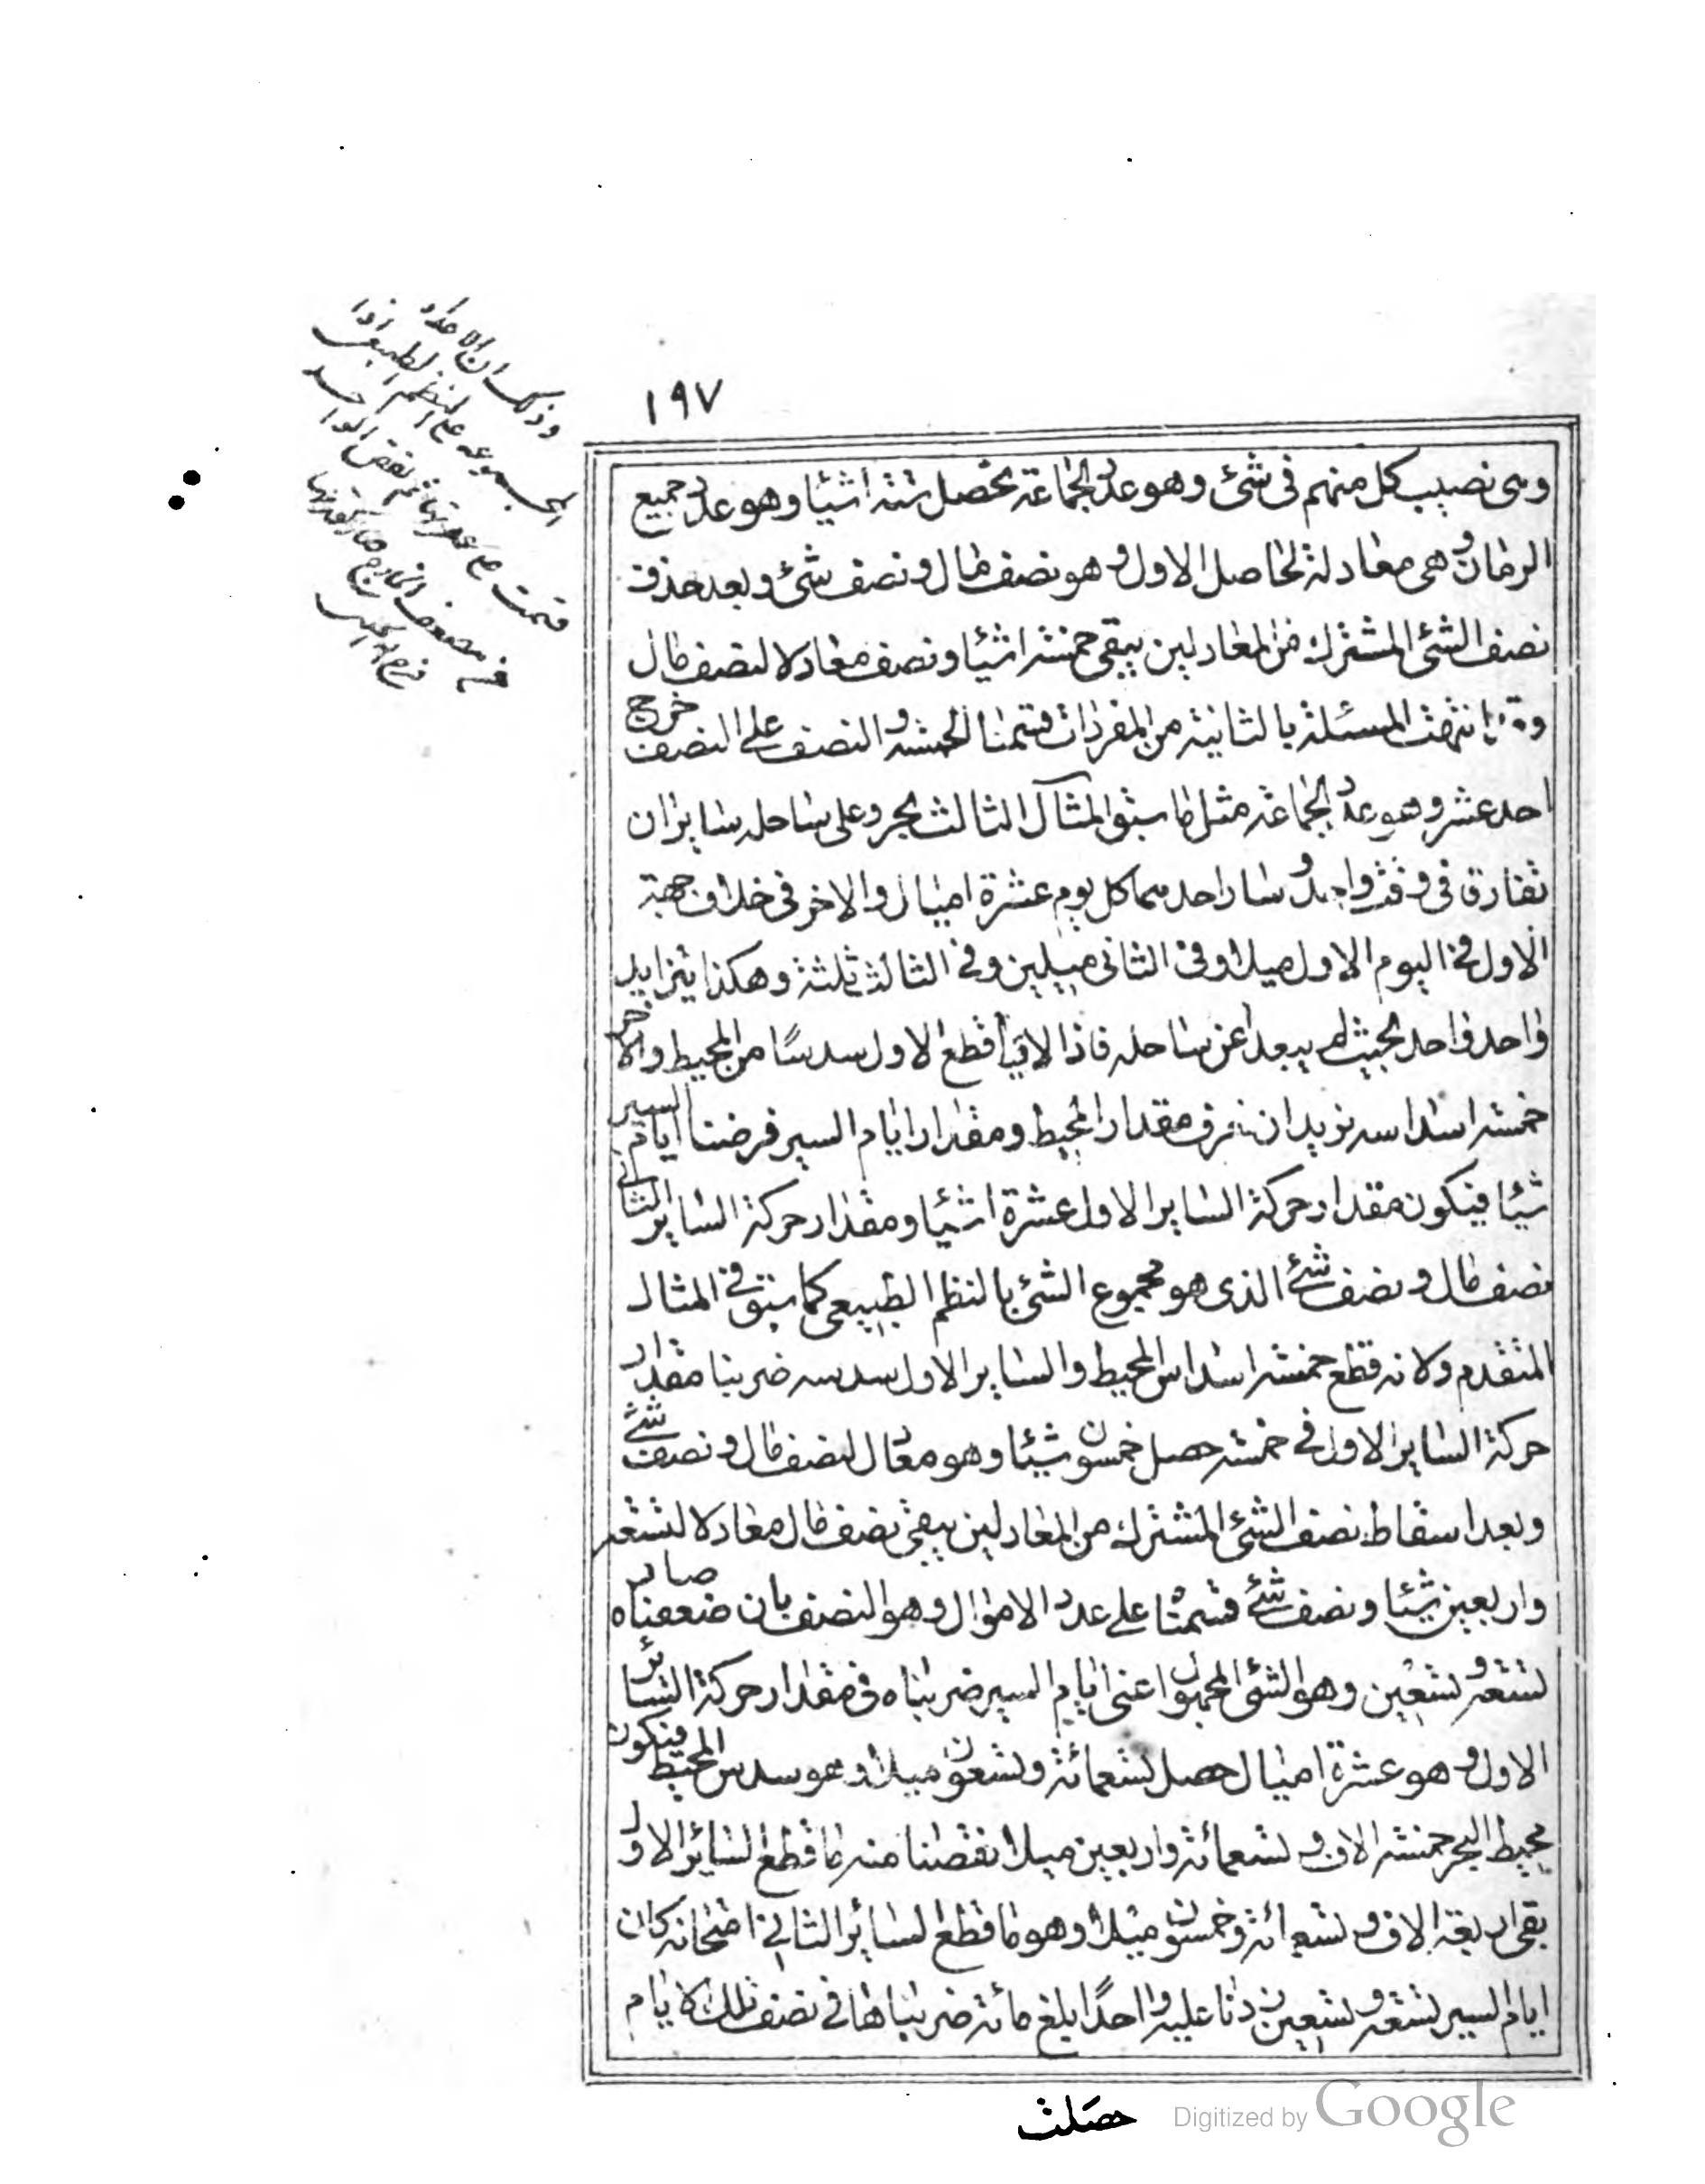 ١٩٧
وهى نصيب كل منهم فى شئ وهو عدد الجماعة يحصل ستة اشيا وهو عدد جميع
الرمان وهى معادلة للحاصل الاول وهو نصف مال ونصف شئ وبعد حذف
نصف الشئ المشترك من المعادلين يبقى خمسة اشيا ونصف معادلا لنصف مال
انتهت المسئلة بالثانية من المفردات قسمنا الخمسة والنصف على النصف خرج
احد عشر وهو عدد الجماعة مثل ما سبق المثال الثالث بحر وعلى ساحله سايران
تفارق فى وقت واحد وسار احدهما كل يوم عشرة اميال والاخر فى خلاف جهة
الاول فى اليوم الاول ميلا وفى الثانى ميلين وفى الثالث ثلثة وهكذا يتزايد
واحد فواحد بحيث لم يبعدا عن ساحله فاذا لاقيا قطع الاول سدسا من المحيط والاخر
خمسة اسداسه نريد ان نعرف مقدار المحيط ومقدار ايام السير فرضنا ايام السير
شيئا فيكون مقدار حركة الساير الاول عشرة اشيا ومقدار حركة الساير الثانى
نصف مال ونصف شئ الذى هو مجموع الشئ بالنظم الطبيعى كما سبق فى المثال
المتقدم ولانه قطع خمسة اسداس المحيط والساير الاول سدسه ضربنا مقدار
حركة الساير الاول فى خمسة حصل خمسون شيئا وهو معادل لنصف مال ونصف شئ
وبعد اسقاط نصف الشئ المشترك من المعادلين يبقى نصف مال معادلا لتسعة
واربعين شيئا ونصف شئ قسمتا على عدد الاموال وهو النصف بان ضعفناه صار
تسعة وتسعين وهو الشئ المجهول اعنى ايام السير ضربناه فى مقدار حركة السائر
الاول وهو عشرة اميال حصل تسعمائة وتسعون ميلا وهو سدس المحيط فيكون
محيط البحر خمسة الاف وتسعمائة واربعين ميلا نقصنا منه ما قطع السائر الاول
بقى اربعة الاف وتسعمائة وخمسون ميلا وهو ما قطع السائر الثانى امتحانه كان
ايام السير تسعة وتسعين زدنا عليه واحدا يبلغ مائة ضربناها فى نصف تلك الايام
حصلت
وذلك ان الاعداد
المجموعة على النظم الطبيعى اذا
قسمت على
Digitized by Google